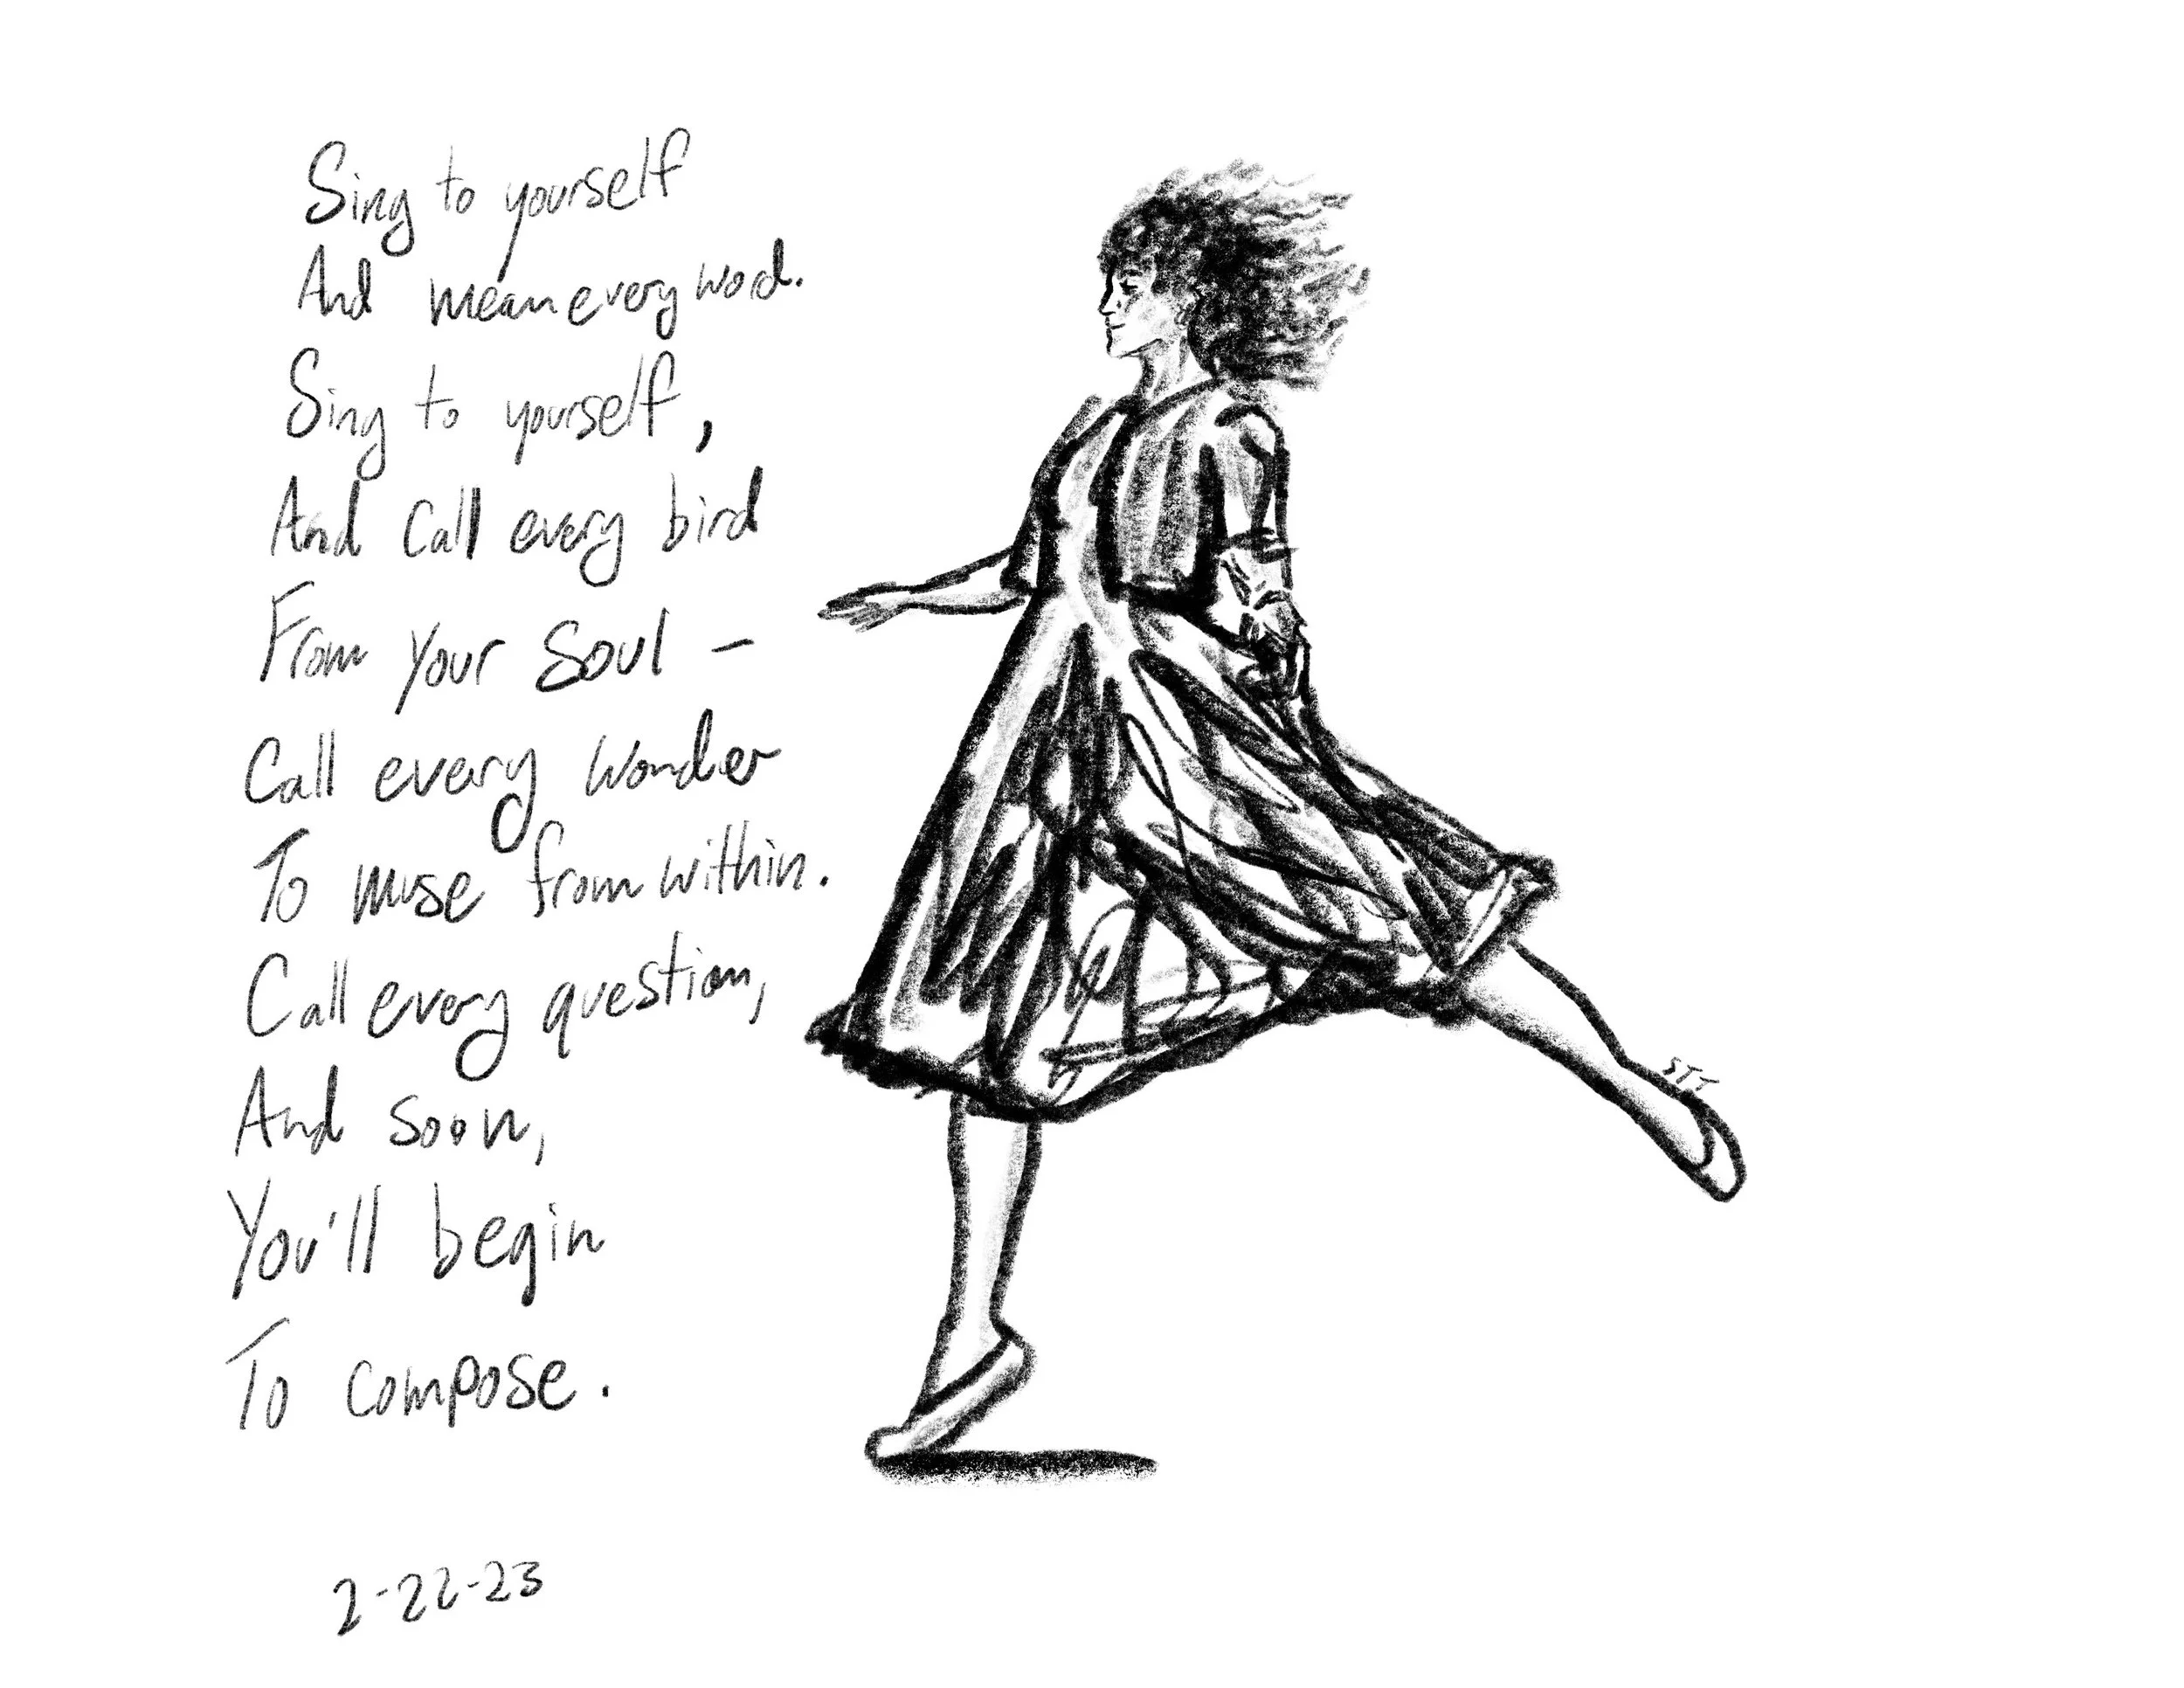 Sing to yourself
And mean every word.
Sing to yourself,
And call every bird
From your soul –
Call every wonder
To muse from within.
Call every question,
And soon,
You'll begin
To compose.
STT
2-22-23